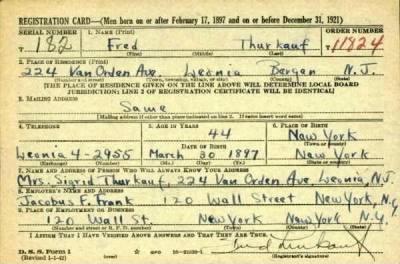 REGISTRATION CARD—(Men born on or after February 17, 1897 and on or before December 31, 1921)
SERIAL NUMBER 1. NAME (Print) ORDER NUMBER
T 182 Fred Thurkauf 11824
(First) (Middle) (Last)
2. PLACE OF RESIDENCE (Print)
224 Van Orden Ave Leonia Bergen N.J.
(Number and street) (Town, township, village, or city) (County) (State)
[THE PLACE OF RESIDENCE GIVEN ON THE LINE ABOVE WILL DETERMINE LOCAL BOARD
JURISDICTION; LINE 2 OF REGISTRATION CERTIFICATE WILL BE IDENTICAL]
3. MAILING ADDRESS
Same
[Mailing address if other than place indicated on line 2. If same insert word same]
4. TELEPHONE 5. AGE IN YEARS 6. PLACE OF BIRTH
44 New York
DATE OF BIRTH (Town or county)
Leonia 4-2955 March 30 1897 New York
(Exchange) (Number) (Mo.) (Day) (Yr.) (State or country)
7. NAME AND ADDRESS OF PERSON WHO WILL ALWAYS KNOW YOUR ADDRESS
Mrs. Sigrid Thurkauf, 224 Van Orden Ave Leonia, N.J.
8. EMPLOYER'S NAME AND ADDRESS
Jacobus F. Frank 120 Wall Street New York, N.Y.
9. PLACE OF EMPLOYMENT OR BUSINESS
120 Wall St. New York New York N.Y.
(Number and street or R. F. D. number) (Town) (County) (State)
I AFFIRM THAT I HAVE VERIFIED ABOVE ANSWERS AND THAT THEY ARE TRUE.
D. S. S. Form 1
(Revised 1-1-42) (over) Fred Thurkauf